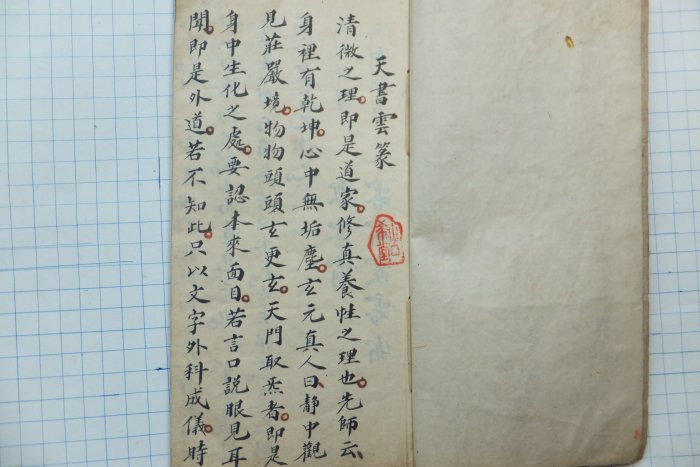 天書雲篆
清微之理。即是道家。修真養性之理也。先師云、
身裡有乾坤。心中無垢塵。玄元真人曰、静中觀
見莊嚴境。物物頭頭玄更玄。天門取炁者。即是
身中生化之處。要認本來面目。若言口説眼見耳
聞。即是外道。若不知此。只以文字外科成儀。時